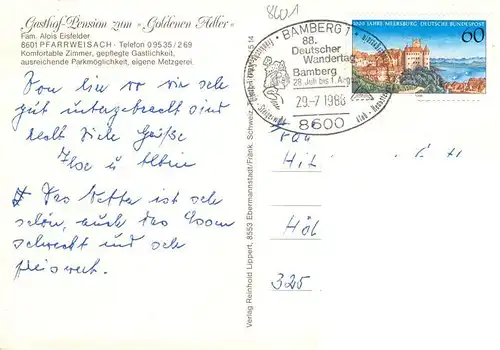 8601
„Gasthof-Pension zum „Goldenen Adler"
Fam. Alois Eisfelder
8601 PFARRWEISACH · Telefon 09535/269
Komfortable Zimmer, gepflegte Gastlichkeit,
ausreichende Parkmöglichkeit, eigene Metzgerei.
Von hier wo wir sehr
gut untergebracht sind
recht viele Grüße
Ilse u
Das Wetter ist sehr
schön, auch das Essen
schmeckt und sehr
preiswert.
Verlag Reinhold Lippert, 8553 Ebermannstadt/Fränk. Schweiz, 1514
BAMBERG 1
88.
Deutscher
Wandertag
Bamberg
29. Juli bis 1. Aug.
29.-7 1988
8600
1000 JAHRE MEERSBURG DEUTSCHE BUNDESPOST
60
Hit
Höl
325